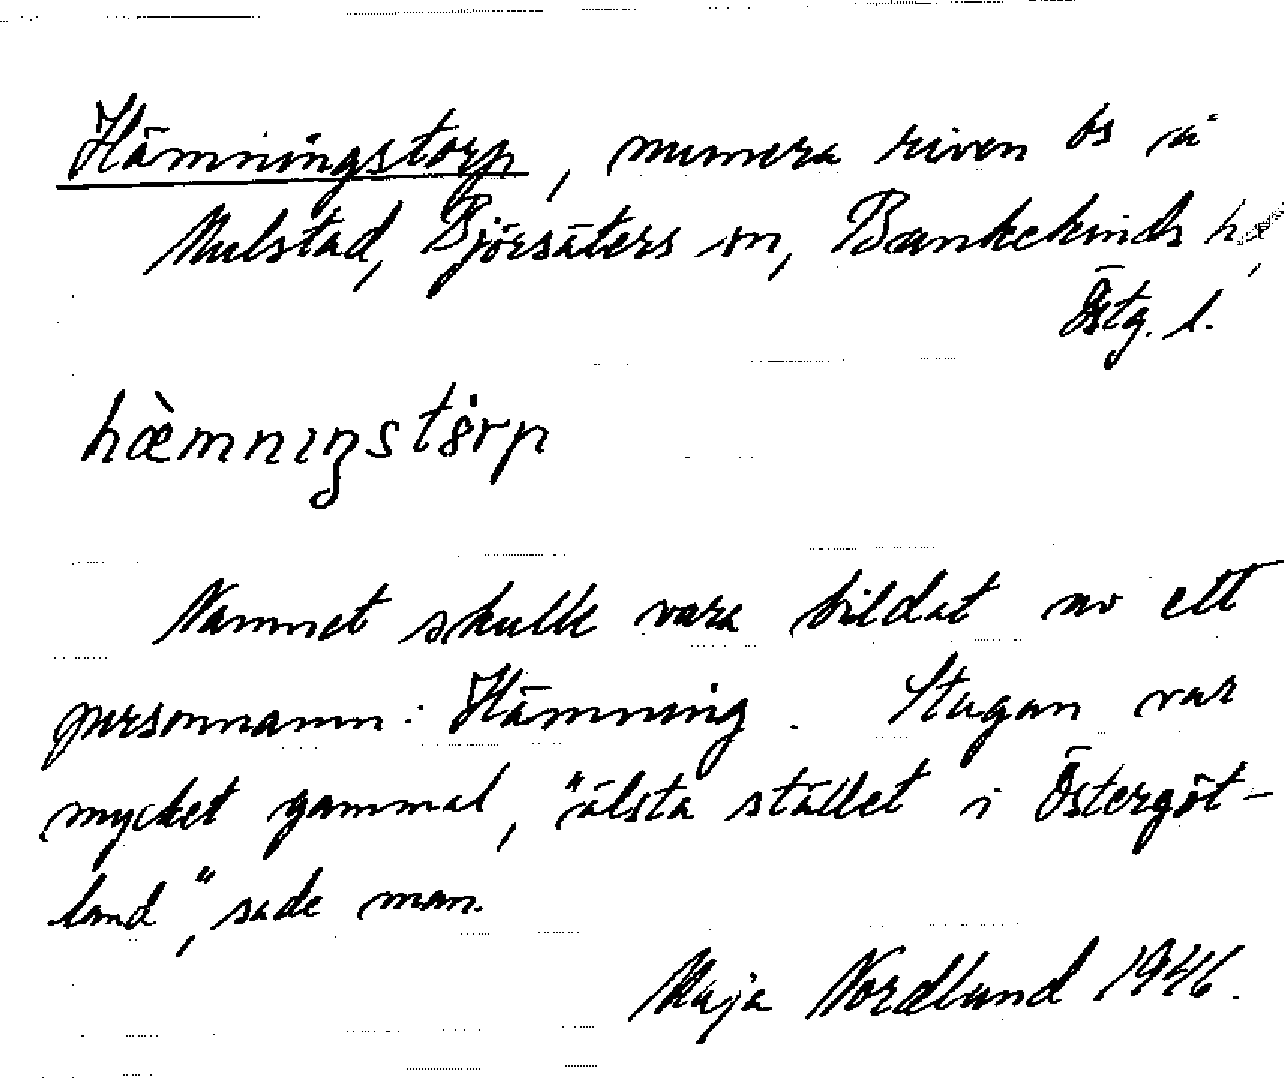 Hämningstorp, numera riven bs å
Mulstad, Björsäters sn, Bankekinds h,
Östg. l.
hæ̀mnıŋstȯrp
Namnet skulle vara bildat av ett
personnamn: Hämning. Stugan var
mycket gammal, "älsta stället i Östergöt-
land", sade man.
Maja Nordlund 1946.